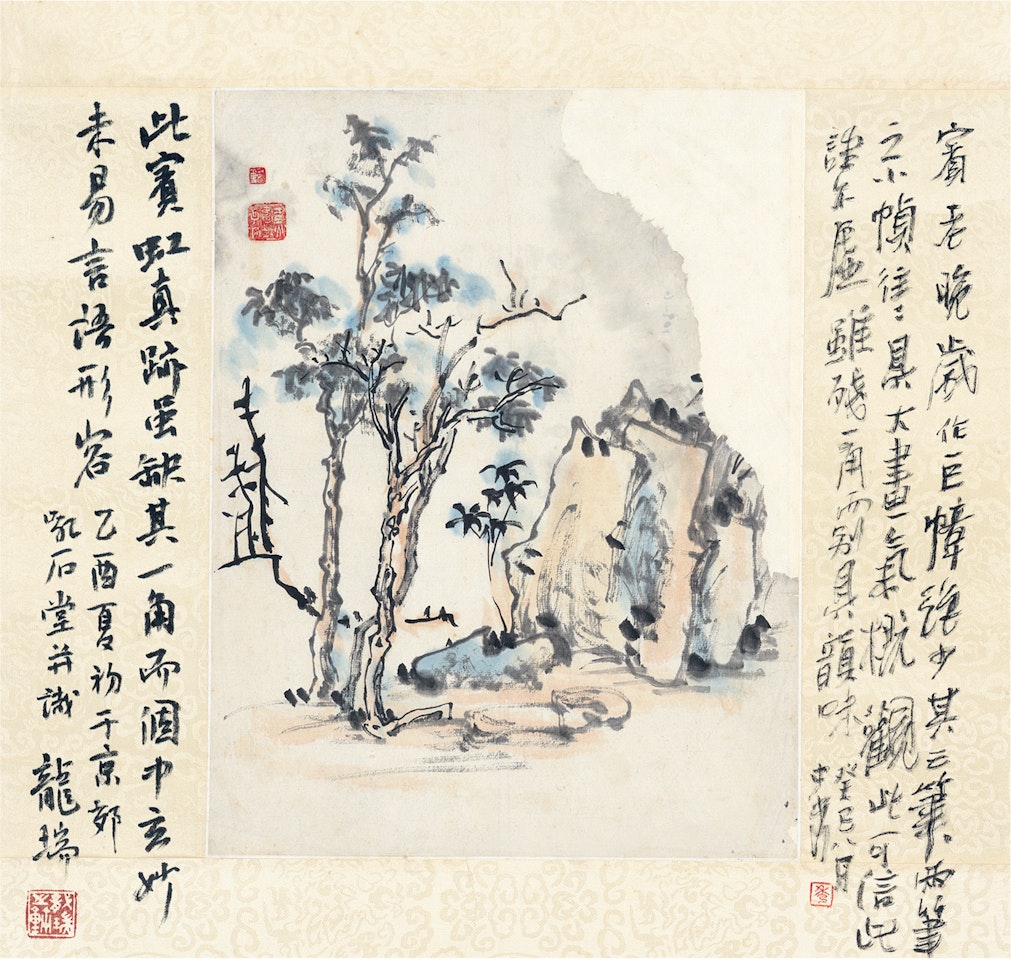 賓老晚歲作巨幛絕少其三筆兩筆
之小幀往〻具大畫氣概觀此可信此
雖殘一角而別具韻味 癸巳八月
此賓虹真跡虽缺其一角而個中玄妙
未易言語形容 乙酉夏初于京郊
石堂并識 龍瑞